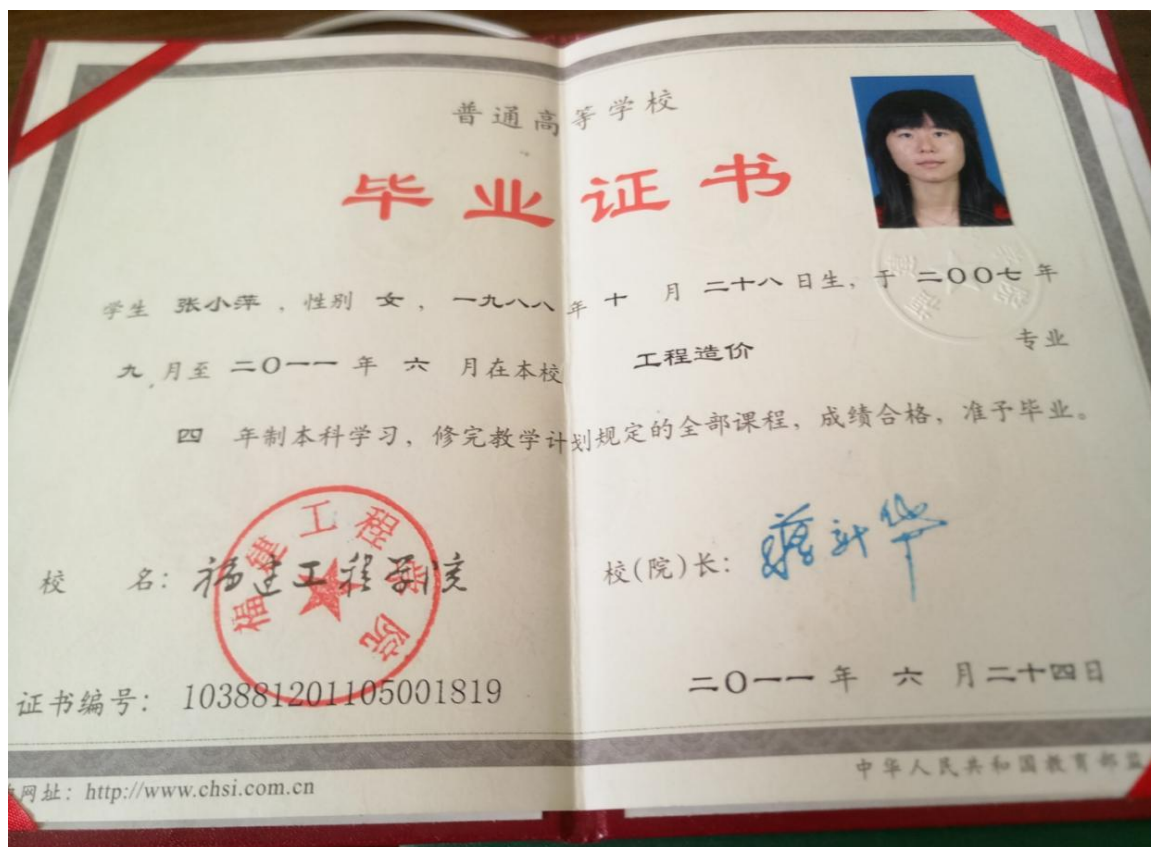 普通高等学校
毕业证书
学生 张小萍，性别 女，一九八八年 十 月 二十八日生，于 二〇〇七年
九 月至 二〇一一 年 六 月在本校 工程造价 专业
四 年制本科学习，修完教学计划规定的全部课程，成绩合格，准予毕业。
校 名：福建工程学院
福建工程学院
校(院)长：蒋新华
证书编号：103881201105001819
二〇一一 年 六 月二十四日
网址：http://www.chsi.com.cn
中华人民共和国教育部监